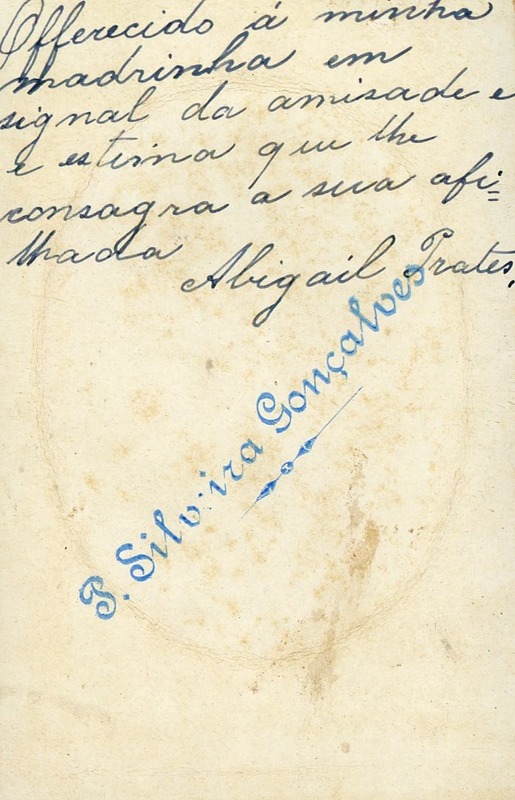 Offerecido á minha
madrinha em
signal da amisade e
e estima que lhe
consagra a sua afi=
lhada
Abigail Prates,
P. Silveira Gonçalves